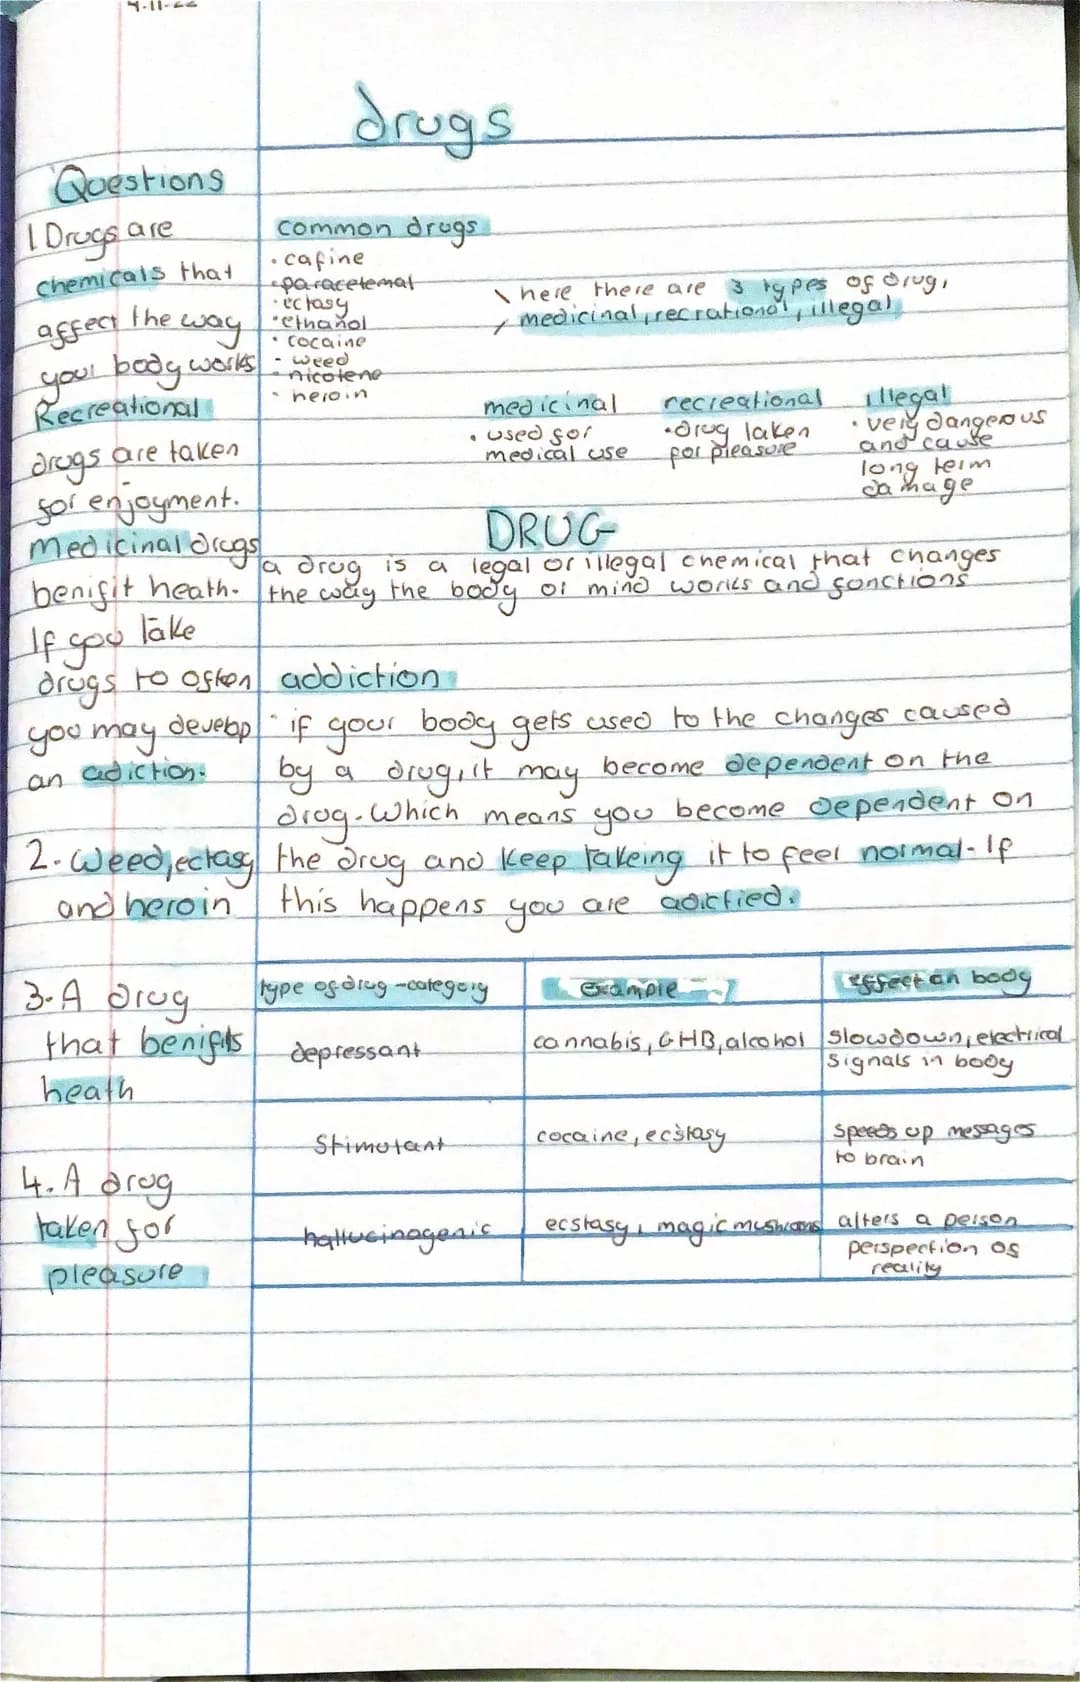 drugs
Questions
1 Drugs are
chemicals that
affect the way
your body works
Recreational
drugs are taken
for enjoyment.
medicinal drugs
benifit heath.
If you take
drugs to often
you may develop
an adiction.
2. Weed, ectasy
and heroin
3. A drug
that benifits
heath
4. A drug
taken for
pleasure
common drugs
• cafine
• paracetemal
• ectasy
• ethanol
• cocaine
- weed
- nicotene
• heroin
here there are 3 types of drug,
medicinal, recrational, illegal
medicinal
• used for
medical use
recreational
• drug taken
for pleasure
illegal
• very dangerous
and cause
long term
damage
DRUG
a drug is a legal or illegal chemical that changes
the way the body or mind works and fonctions
addiction
• if your body gets used to the changes caused
by a drug, it may become dependent on the
drug. Which means you become dependent on
the drug and keep takeing it to feel normal. If
this happens you are adictied.
type of drug - category example effect on body
depressant cannabis, GHB, alcohol slowdown, electrical
signals in body
Stimulant cocaine, ecstasy speeds up messages
to brain
hallucinogenic ecstasy, magic mushrooms alters a person
perspection of
reality